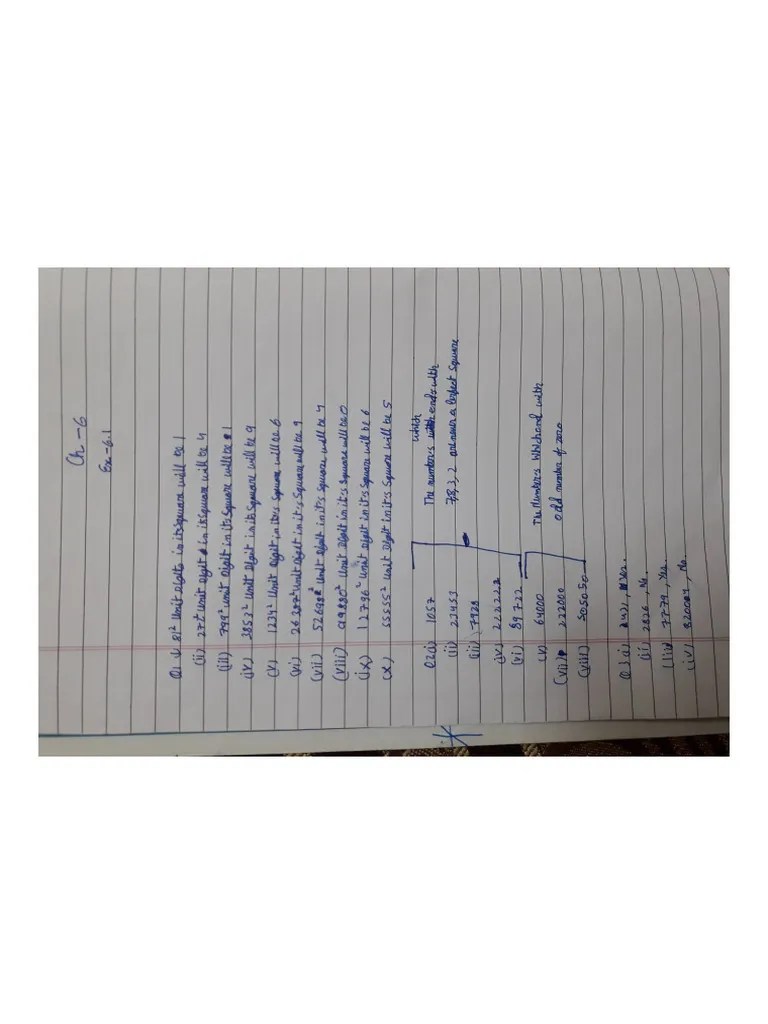 Ch - 6
Ex - 6.1
Q1 i) 81² Unit Digits in its square will be 1
(ii) 272 Unit Digit in its square will be 4
(iii) 799² unit Digit in its square will be 1
(iv) 3853² Unit Digit in its square will be 9
(v) 1234² Unit Digit in it's square will be 6
(vi) 26387² unit Digit in it's square will be 9
(vii) 52698² Unit Digit in it's square will be 4
(viii) 99880² Unit Digit in it's square will be 0
(ix) 12796² Unit Digit in it's square will be 6
(x) 55555² Unit Digit in it's square will be 5
Q2(i) 1057
(ii) 23453
(iii) 7928
(iv) 222222
(vi) 89722
which
The number's ends with
7,8,3,2 are never a perfect square
(v) 64000
(vii) 222000
(viii) 505050
The Number's Which end with
odd number of zero
Q3 i) 431, Yes.
(ii) 2826, No.
(iii) 7779, Yes.
(iv) 820004, No.